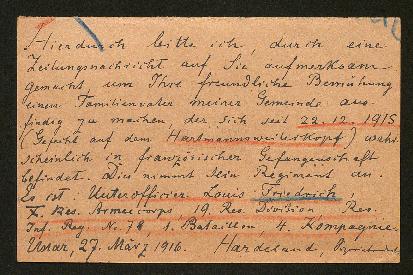 Hierdurch bitte ich, durch eine
Zeitungsnachricht auf Sie aufmerksam
gemacht um Ihre freundliche Bemühung
einen Familienvater meiner Gemeinde aus-
findig zu machen, der sich seit 22.12.1915
(Gefecht auf dem Hartmannsweilerkopf) wahr-
scheinlich in französischer Gefangenschaft
befindet. Dies nimmt sein Regiment an.
Es ist: Unterofficier Louis Friedrich,
X. Res. Armeecorps, 19. Res. Division, Res.
Inf. Reg. No. 78, 1. Bataillon, 4. Kompagnie.
Uslar, 27. März 1916. Hardeland,